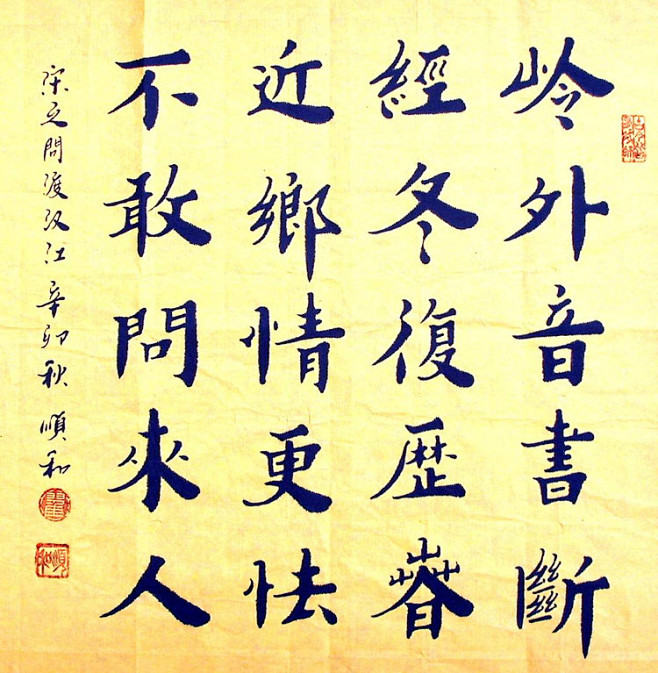 岭外音書斷
經冬復歷春
近鄉情更怯
不敢問來人
宋之問渡汉江 辛卯秋 順和